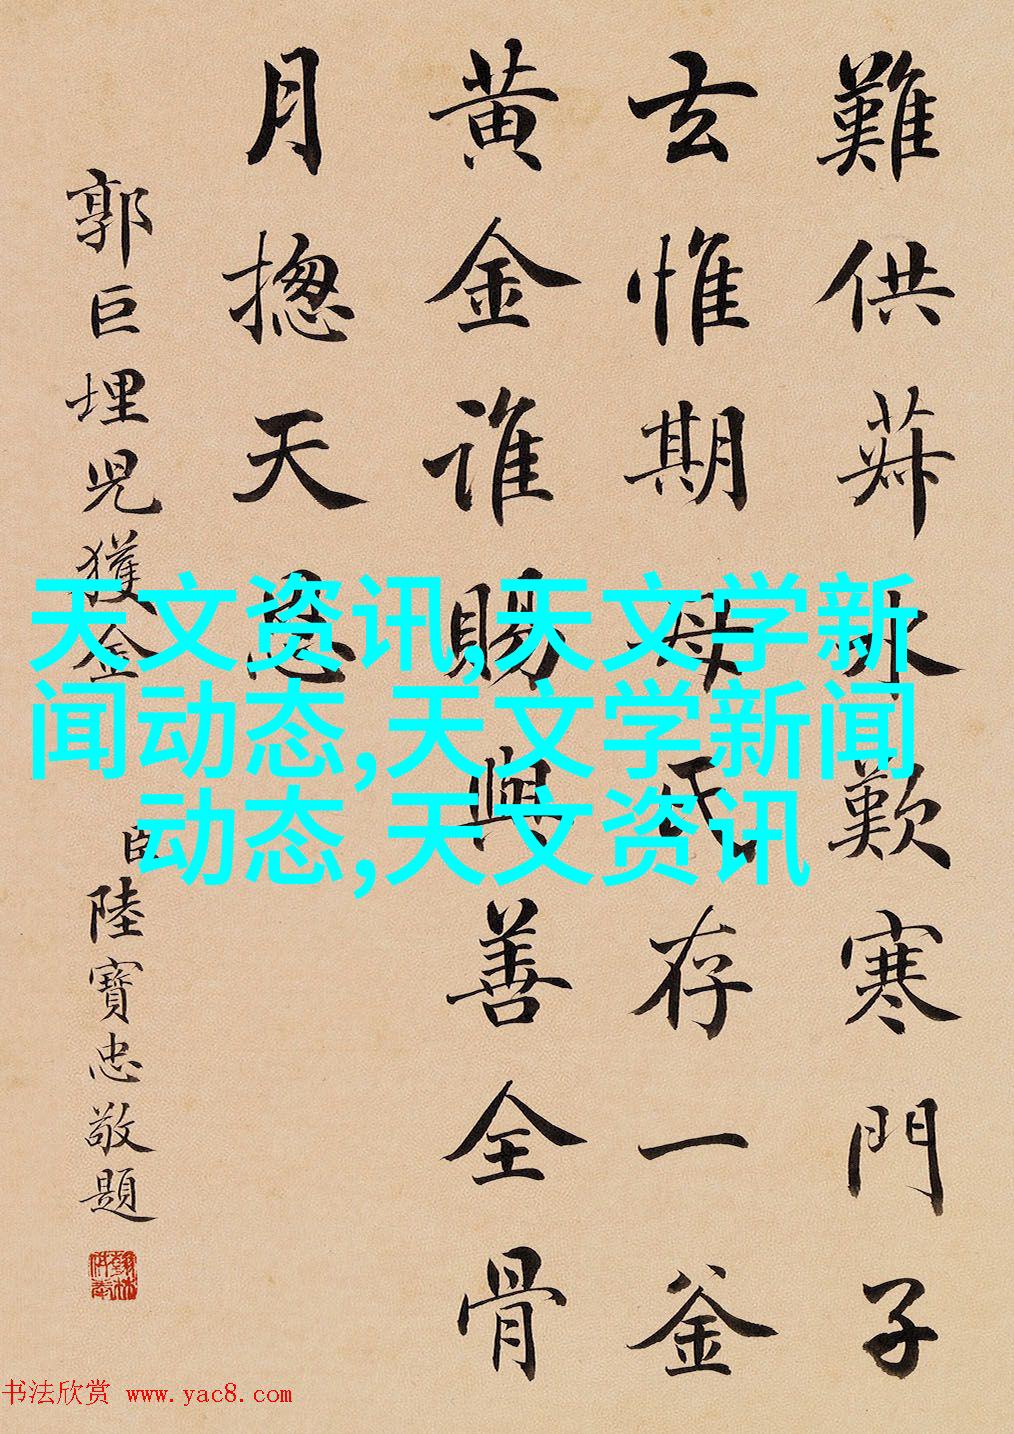 難供菽水歎寒門子
玄惟期母氏存一釜
黄金誰賜與善全骨
月揔天恩
郭巨埋児獲金
臣陸寶忠敬題
翰林供奉
天文资讯,天文学新
闻动态,天文学新闻
动态,天文资讯
书法欣赏 www.yac8.com